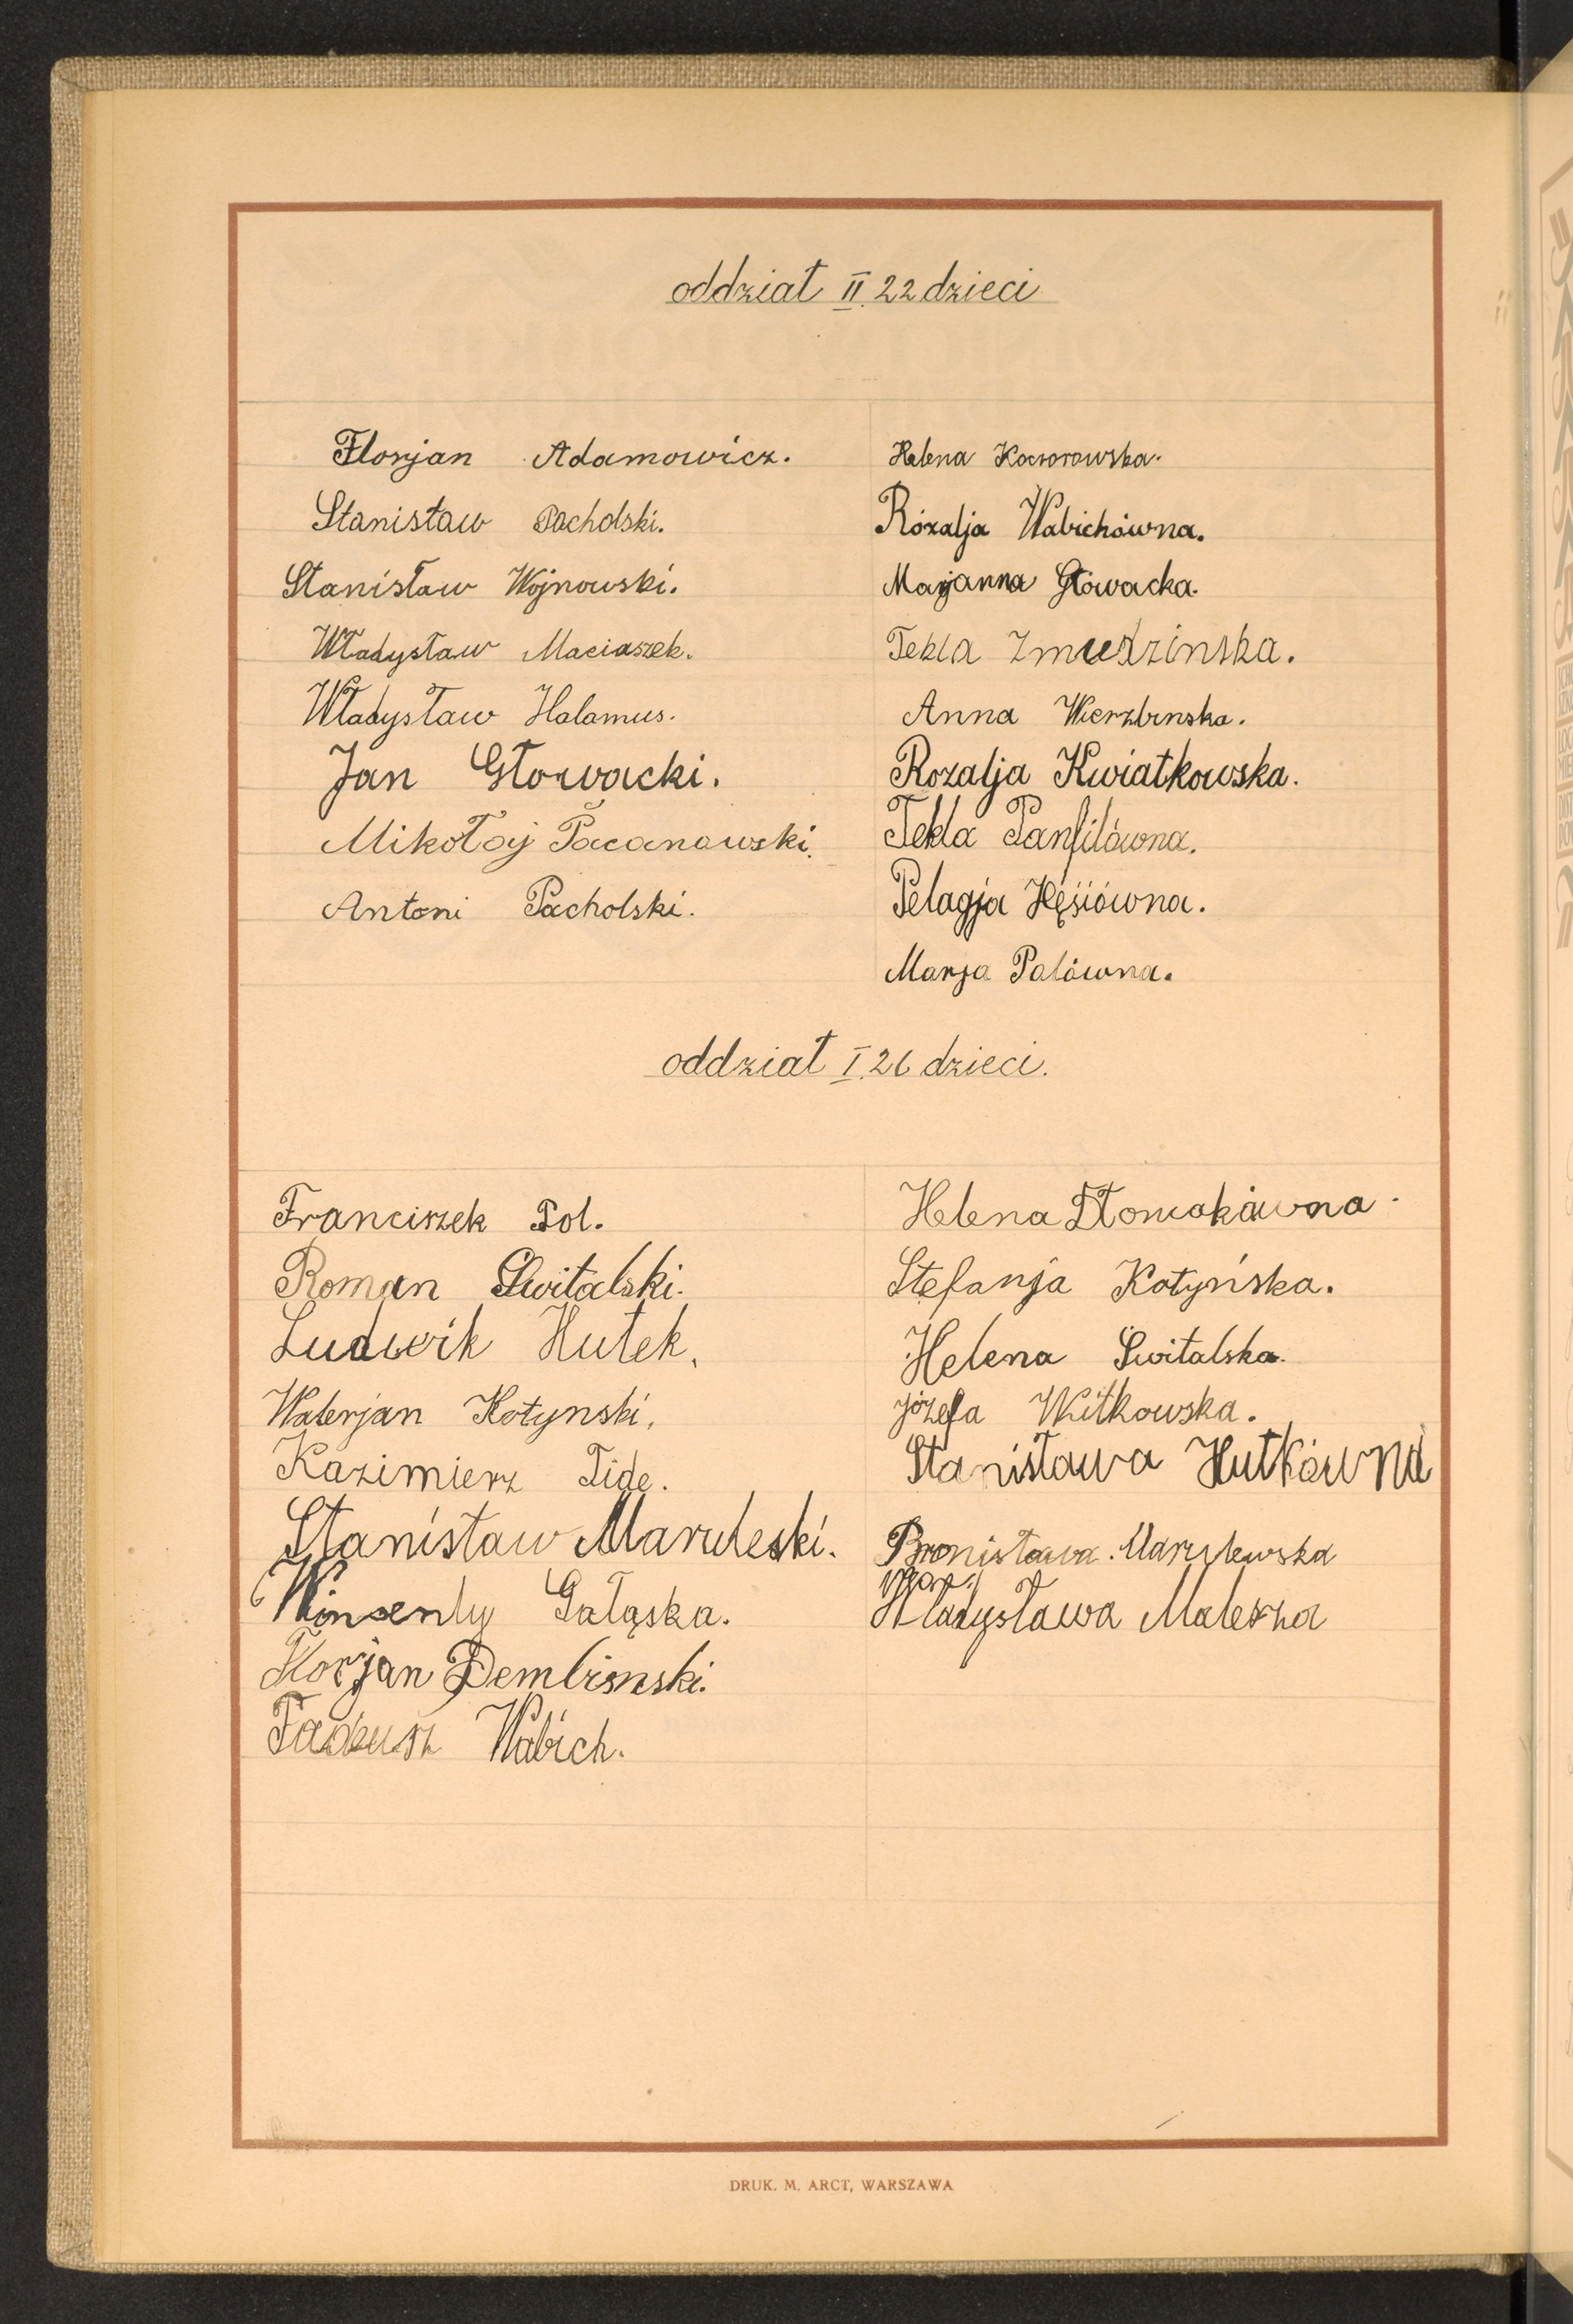 oddział II 22 dzieci
Florjan Adamowicz.
Stanisław Pacholski.
Stanisław Wojnowski.
Władysław Maciaszek.
Władysław Halamus.
Jan Głowacki.
Mikołaj Pacanowski.
Antoni Pacholski.
Helena Kaczorowska.
Rózalja Wabichówna.
Marjanna Głowacka.
Tekla Zmudzinska.
Anna Wierzbinska.
Rozalja Kwiatkowska.
Tekla Panfilówna.
Pelagja
Marja Palówna.
oddział I. 26 dzieci.
Franciszek Pol.
Roman Świtalski.
Ludwik Hutek.
Walerjan Kotynski.
Kazimierz Tide.
Stanisław Maruleski.
Winsenty Gałąska.
Florjan Dembinski.
Tadeusz Wabich.
Helena
Stefanja Kotyńska.
Helena Świtalska.
Józefa Witkowska.
Stanisława Hutkówna
Bronisława Marulewska
Władysława Maleszka
DRUK. M. ARCT, WARSZAWA